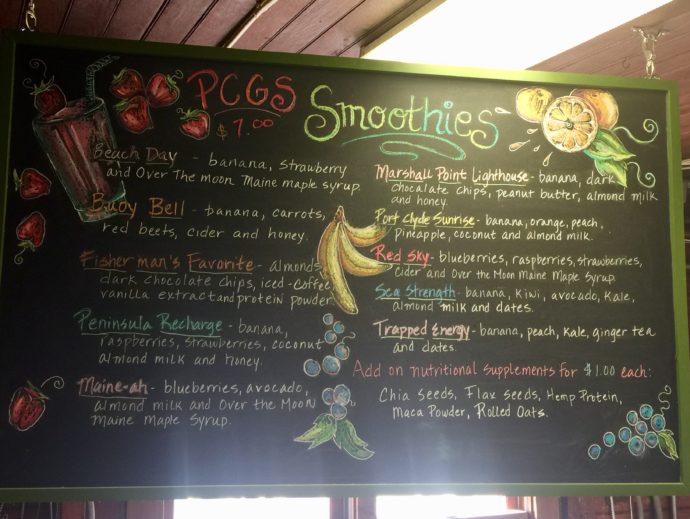 PCGS Smoothies
$7.00
Beach Day - banana, strawberry
and Over The moon Maine maple syrup.
Buoy Bell - banana, carrots,
red beets, cider and honey.
Fisherman's Favorite - almonds,
dark chocolate chips, iced-coffee,
vanilla extract and protein powder
Peninsula Recharge - banana,
raspberries, strawberries, coconut
almond milk and honey.
Maine-ah - blueberries, avocado,
almond milk and Over the Moon
Maine Maple Syrup.
Marshall Point Lighthouse - banana, dark
chocolate chips, peanut butter, almond milk
and honey.
Port Clyde Sunrise - banana, orange, peach,
Pineapple, coconut and almond milk.
Red Sky - blueberries, raspberries, strawberries,
Cider and Over the Moon Maine Maple Syrup.
Sea Strength - banana, Kiwi, avocado, Kale,
almond milk and dates.
Trapped Energy - banana, peach, Kale, ginger tea
and dates.
Add on nutritional supplements for $1.00 each:
Chia seeds, Flax seeds, Hemp Protein,
Maca Powder, Rolled Oats.